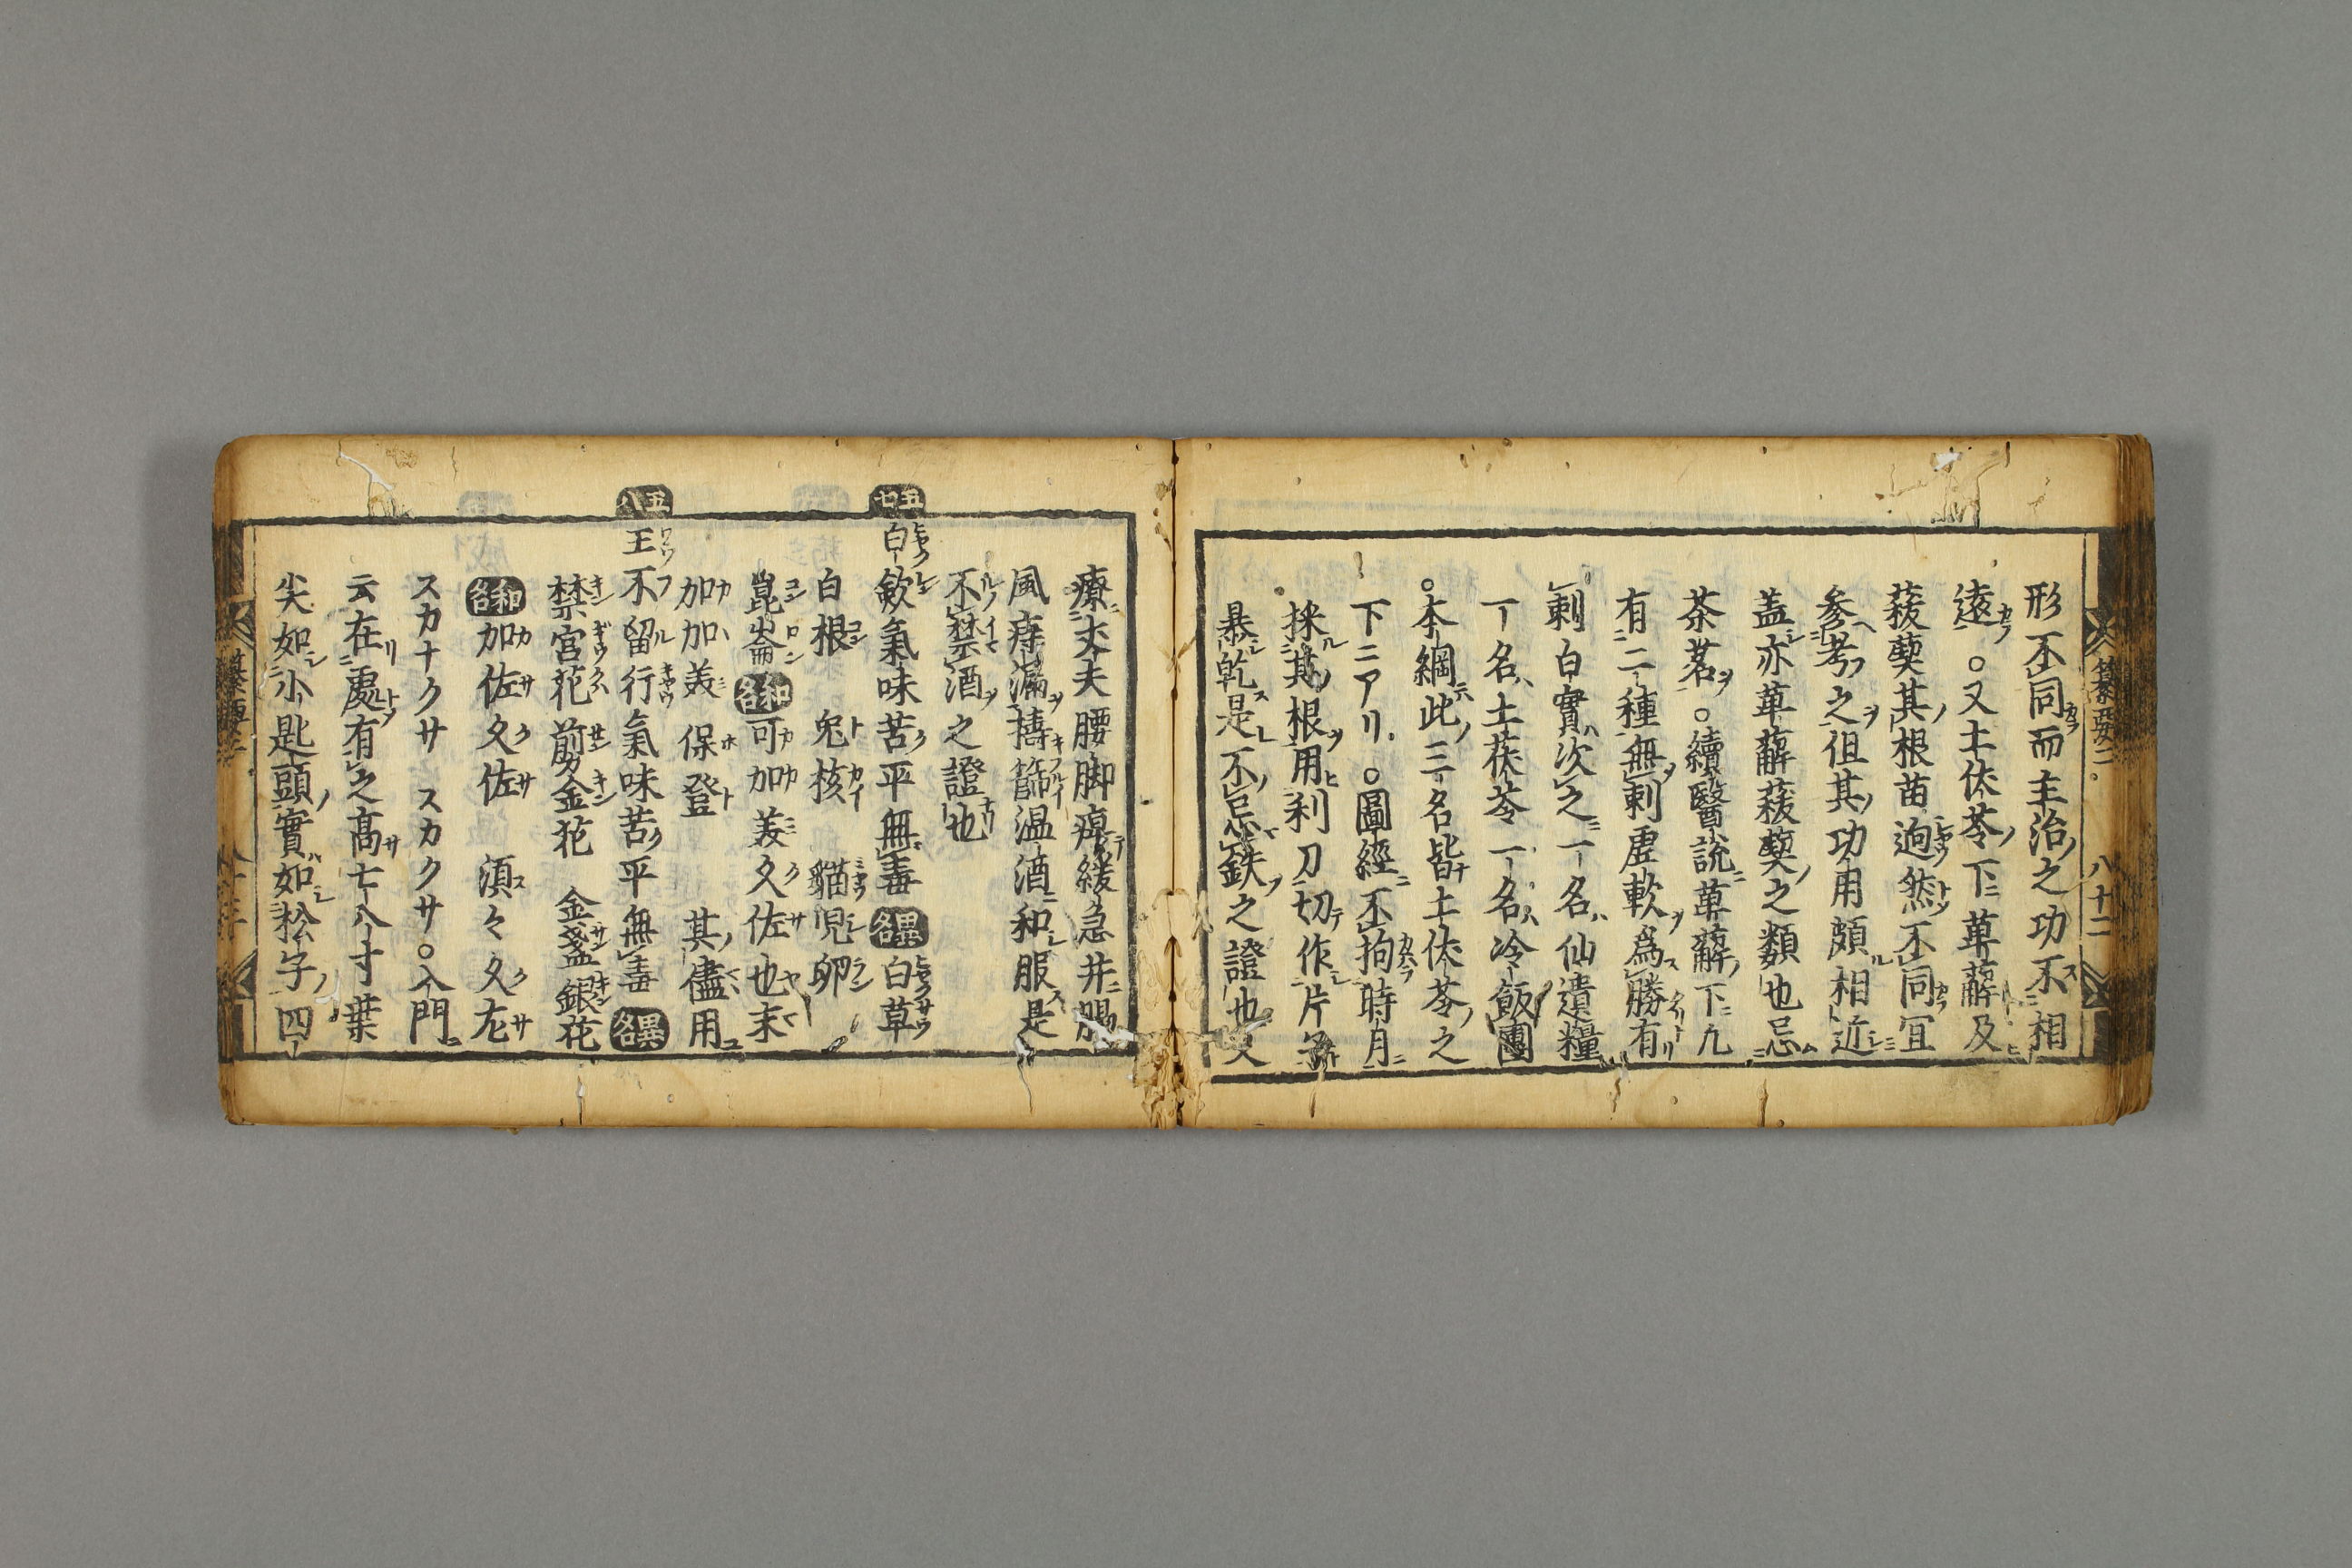 形不同而主治之功不相
遠。又土茯苓下萆薢及
菝葜其根苗逈然不同冝
参考之但其功用頗相近
盖亦萆薢菝葜之類也忌
茶茗。續醫説萆薢下凢
有二種無刺虚軟為勝有
刺白實次之一名仙遺糧
一名土茯苓一名冷飯團
○本綱此三名皆土茯苓之
下ニアリ。○圖經不拘時月
採其根用利刀切作片子
暴乾是不忌鉄之證也又
纂要二 八十二
療丈夫腰脚痺緩急并腸
風痔漏擣篩温酒和服是
不禁酒之證也
五七
白歛氣味苦平無毒 異名 白草
白根 兔核 貓児卵
崑崙 和名 可加美久佐也末
加加美 保登 其儘用
五八
王不留行氣味苦平無毒 異名
禁宮花 剪金花 金盞銀花
和名 加佐久佐 須々久左
スカナクサ スカクサ。入門
云在處有之高七八寸葉
尖如小匙頭實如松子四